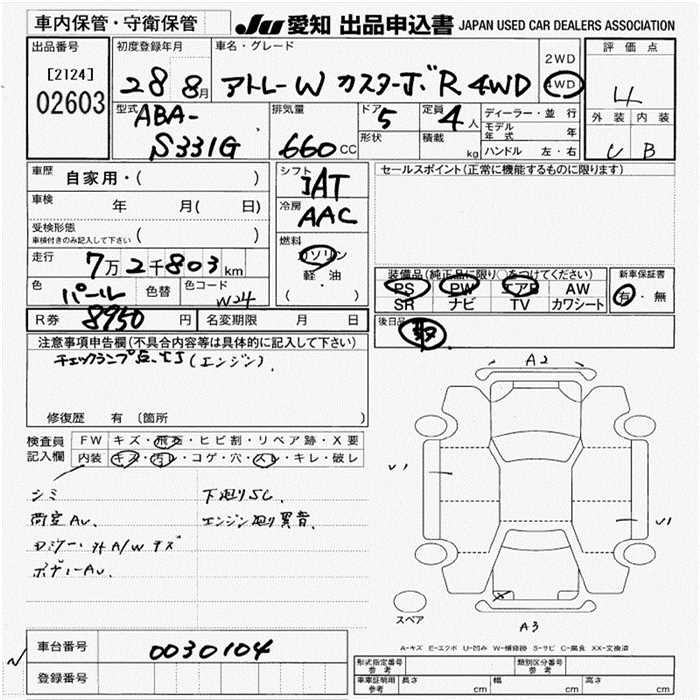 車内保管・守衛保管
JU 愛知 出品申込書 JAPAN USED CAR DEALERS ASSOCIATION
出品番号
[2124]
02603
初度登録年月
28 8月
車名・グレード
アトレーW カスターボR 4WD
2WD
4WD
評価点
4
外装 内装
B
型式
ABA-
S331G
排気量
660cc
ドア
5
形状
定員
4人
積載
kg
ディーラー・並行
モデル年式 年
ハンドル 左・右
車歴
自家用・( )
車検
年 月( 日)
受検形態
車検付きのみ記入して下さい ( )
走行
7万2千803km
色
パール
色替
色コード
W24
R券 8950円
名変期限 月 日
シフト
IAT
冷房
AAC
燃料
ガソリン
軽・油
( )
セールスポイント(正常に機能するものに限ります)
装備品(純正品に限り○をつけてください)
PS PW エアB AW
SR ナビ TV カワシート
新車保証書
有・無
後日品
取
注意事項申告欄(不具合内容等は具体的に記入して下さい)
チェックランプ点灯(エンジン).
修復歴 有 〔箇所 〕
検査員記入欄
FW キズ・飛石・ヒビ割・リペア跡・X要
内装 キズ・汚レ・コゲ・穴・スレ・キレ・破レ
シミ
下廻りSC.
荷室Av.
エンジン廻り異音.
外A/Wキズ
ボディーAv.
A2
V1
V1
A3
スペア
A-キズ E-エクボ U-凹み W-補修跡 S-サビ C-腐食 XX-交換済
車台番号
0030104
登録番号
形式指定番号参考
類別区分番号参考
車庫証明用参考
長さ cm
幅 cm
高さ cm